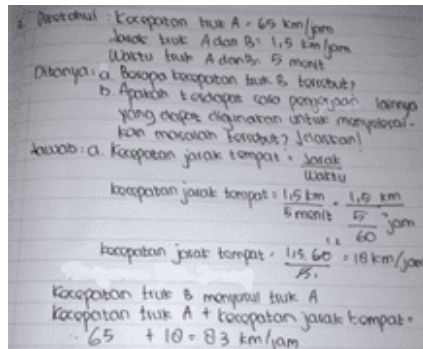 2. Diketahui : Kecepatan truk A = 65 km/jam
Jarak truk A dan B = 1,5 km/jam
Waktu truk A dan B = 5 menit
Ditanya : a. Berapa kecepatan truk B tersebut?
b. Apakah terdapat cara pengerjaan lainnya
yang dapat digunakan untuk menyelesai-
kan masalah tersebut? Jelaskan!
Jawab : a. Kecepatan jarak tempat = Jarak
Waktu
kecepatan jarak tempat = 1,5 km = 1,5 km
5 menit 5 jam
60
kecepatan jarak tempat = 1,5 . 60 = 18 km/jam
5
Kecepatan truk B menyusul truk A
Kecepatan truk A + kecepatan jarak tempat =
65 + 18 = 83 km/jam